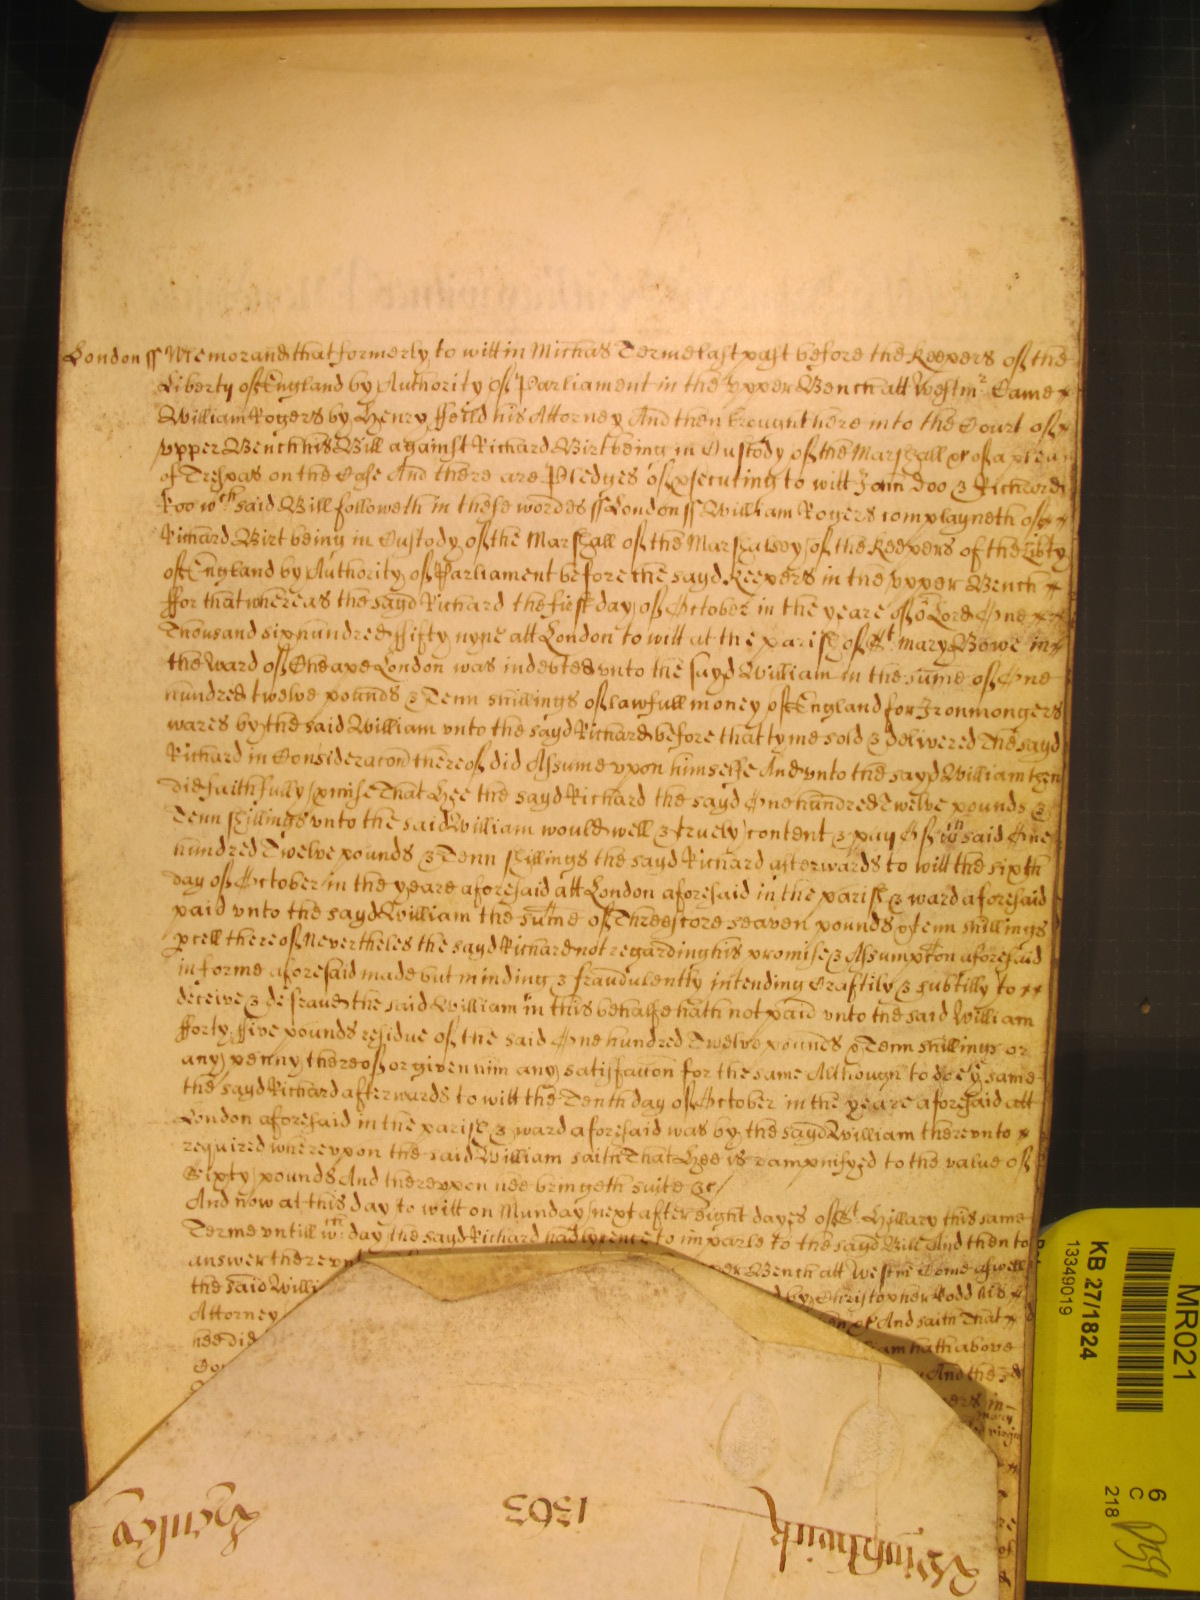 London ss Memorand that formerly to witt in Michas Terme last past before the Keepers of the
Liberty of England by Authority of Parliament in the Vpper Bench att Westmr Came
William Rogers by Henry ffeild his Attorney And then brought here into the Court of
vpper Bench his Bill against Richard Birt being in Custody of the Marshall &c of a plea
of Trespas on the Case And there are Pledges of psecuting to witt John Doo & Richard
Roo wch said Bill followeth in these wordes ss London ss William Rogers complayneth of
Richard Birt being in Custody of the Marshall of the Marshalsey of the Keepers of the Libty
of England by Authority of Parliament before the sayd Keepers in the Vpper Bench
ffor that whereas the sayd Richard the first day of October in the yeare of or Lord One
Thousand six hundred ffifty nyne att London to witt at the parish of St mary Bowe in
the Ward of Cheape London was indebted vnto the sayd William in the sume of One
hundred twelve pounds & Tenn shillings of lawfull money of England for Ironmongers
wares by the said William vnto the sayd Richard before that tyme sold & delivered The sayd
Richard in Consideracon thereof did Assume vpon himselfe And vnto the sayd William then
did faithfully pmise That Hee the sayd Richard the sayd One hundred Twelve pounds &
Tenn shillings vnto the said William would well & truely content & pay Of wch said One
hundred Twelve pounds & Tenn shillings the sayd Richard afterwards to witt the sixth
day of October in the yeare aforesaid att London aforesaid in the parish & ward aforesaid
paid vnto the sayd William the sume of Threescore seaven pounds & tenn shillings
pcell thereof Nevertheles the sayd Richard not regarding his promise & Assumption aforesaid
in forme aforesaid made but minding & fraudulently intending Craftily & subtilly to
deceive & defraud the said William in this behalfe hath not paid vnto the said William
fforty ffive pounds residue of the said One hundred Twelve pounds & Tenn shillings or
any penny thereof or given him any satisfaccon for the same Although to doe ye same
the sayd Richard afterwards to witt the Tenth day of October in the yeare aforesaid att
London aforesaid in the parish & ward aforesaid was by the sayd William therevnto
required wherevpon the said William saith That Hee is dampnifyed to the value of
Sixty pounds And therevpon hee bringeth suite &c
And now at this day to witt on Munday next after eight dayes of St Hillary this same
Terme vntill wch day the sayd Richard had lycence to imparle to the sayd Bill And then to
answer Bench att Westmr Come aswell
the said Willi by Christopher Todd his
Attorney And saith That
hee did hath above
And the
in
mary
virgin
Henley 1363 Wightwick
MR021
KB 27/1824
13349019
6
C
218